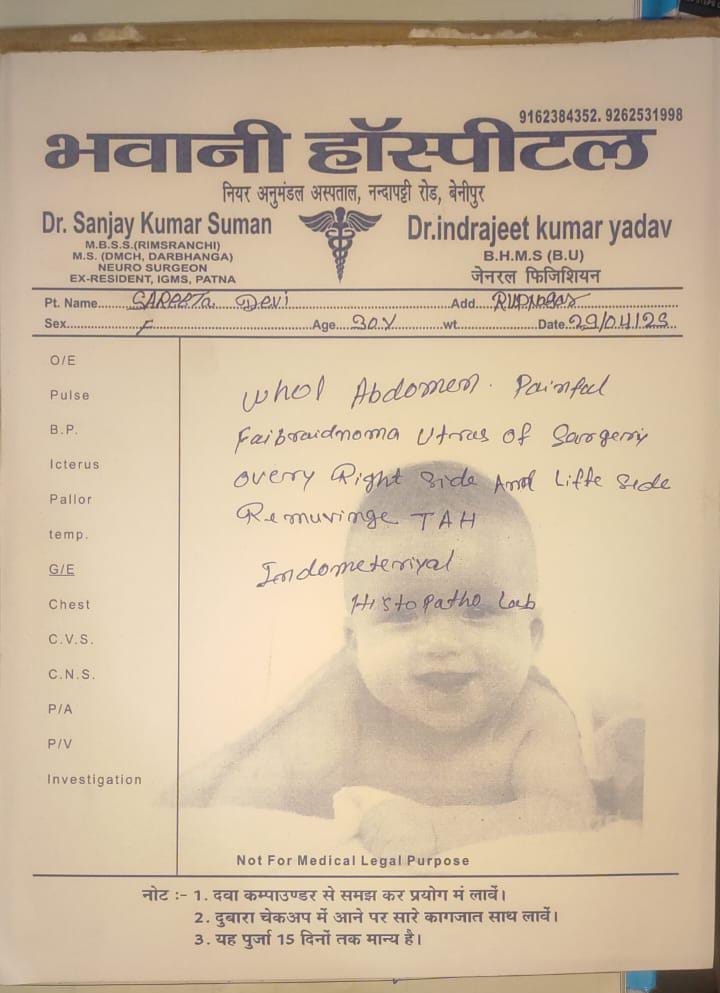 9162384352. 9262531998
भवानी हॉस्पीटल
नियर अनुमंडल अस्पताल, नन्दापट्टी रोड, बेनीपुर
Dr. Sanjay Kumar Suman
M.B.S.S.(RIMSRANCHI)
M.S. (DMCH, DARBHANGA)
NEURO SURGEON
EX-RESIDENT, IGMS, PATNA
Dr.indrajeet kumar yadav
B.H.M.S (B.U)
जेनरल फिजिशियन
Pt. Name SAREETA Devi Add. RUPNagar
Sex F Age 30Y wt. Date 29/04/25
O/E
Pulse
B.P.
Icterus
Pallor
temp.
G/E
Chest
C.V.S.
C.N.S.
P/A
P/V
Investigation
Whol Abdomen. Painful
Faibraidnoma Utras Of Sargeriy
overy Right side And Liffe side
Remuvinge TAH
Indometeriyal
Histopatho Lab
Not For Medical Legal Purpose
नोट :- 1. दवा कम्पाउण्डर से समझ कर प्रयोग मं लावें।
2. दुबारा चेकअप में आने पर सारे कागजात साथ लावें।
3. यह पुर्जा 15 दिनों तक मान्य है।